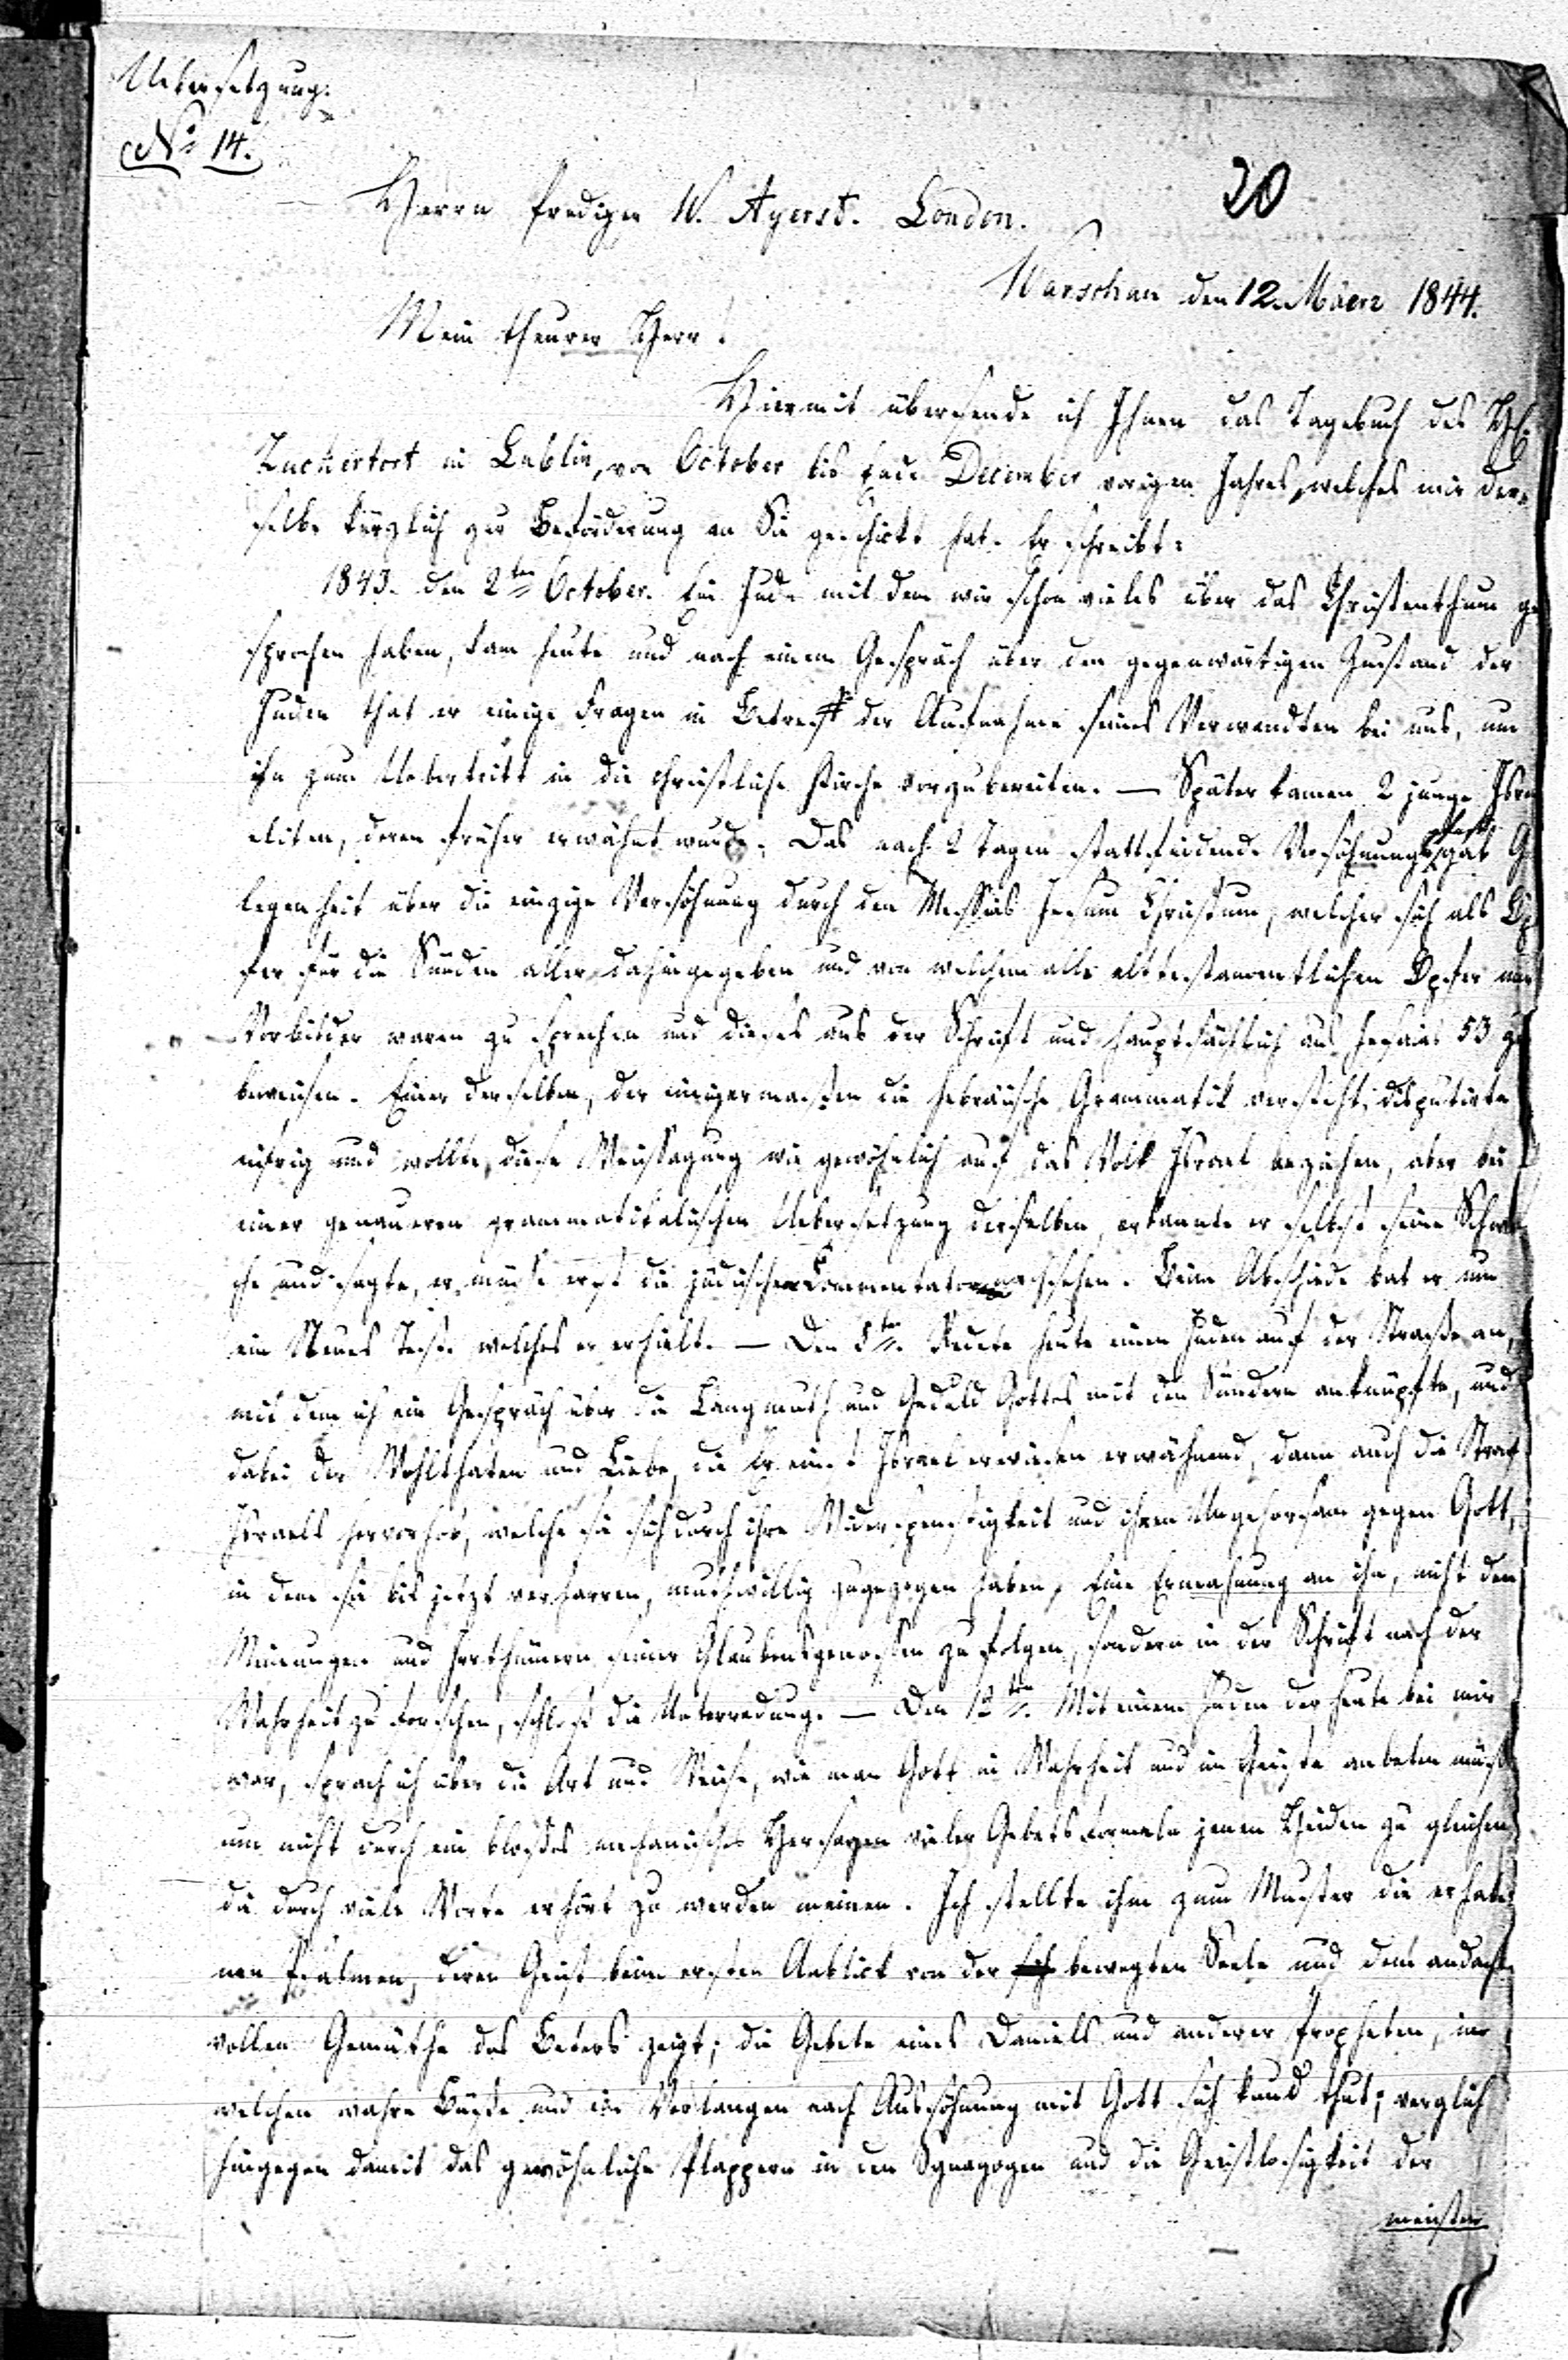 Uebersetzung.
No 14.
20
Herrn Prediger W. Ayerst. London.
Warschau den 12. Maerz 1844.
Mein theurer Herr.
Hiermit übersende ich Ihnen das Tagebuch des H.
Zuckertort in Lublin, von October bis Ende December vorigen Jahres, welches mir der-
selbe kürzlich zur Beförderung an Sie geschickt hat. Er schreibt:
1843. den 2ten October. Ein Jude mit dem wir schon vieles über das Christenthum ge
sprochen haben, kam heute und nach einem Gespräch über den gegenwärtigen Zustand der
Juden that er einige Fragen in Betreff der Aufnahme seines Verwandten bei uns, um
ihn zum Uebertritt in die christliche Kirche vorzubereiten. — Später kamen 2 junge Isra
eliten, deren früher erwähnt wurde. Das nach 2 Tagen stattfindende Versöhnungsfest gab Ge
legenheit über die einzige Versöhnung durch den Messias Jesum Christum, welcher sich als Op
fer für die Sünden aller dahingegeben und von welchem alle alttestamentlichen Opfer nur
Vorbilder waren zu sprechen und dieses aus der Schrift und hauptsächlich aus Jesaias 53 zu
beweisen. Einer derselben, der einigermaßen die hebräische Grammatik versteht, disputirte
eifrig und wollte, diese Weissagung wie gewöhnlich auf das Volk Israel beziehen, aber bei
einer genaueren grammatikalischen Uebersetzung derselben, erkannte er selbst seine Schwä
che und sagte, er müsse erst die jüdischen Commentatoren nachsehen. Beim Abschiede bat er um
ein Neues Test. welches er erhielt. — Den 5ten. Redete heute einen Juden auf der Straße an,
mit dem ich ein Gespräch über die Langmuth und Geduld Gottes mit den Sündern anknüpfte, und
dabei der Wohlthaten und Liebe, die Er einst Israel erwiesen erwähnend, dann auch die Straf
Israels hervorhob, welche sie sich durch ihre Widerspenstigkeit und ihren Ungehorsam gegen Gott,
in dem sie bis jetzt verharren, muthwillig zugezogen haben, Eine Ermahnung an ihn, nicht den
Meinungen und Irrthümern seiner Glaubensgenossen zu folgen, sondern in der Schrift nach der
Wahrheit zu forschen, schloß die Unterredung. — Den 12ten. Mit einem Juden der heute bei mir
war, sprach ich über die Art und Weise, wie man Gott in Wahrheit und im Geiste anbeten müße
um nicht durch ein bloßes mechanisches Hersagen vieler Gebetsformeln jenen Heiden zu gleichen
die durch viele Worte erhört zu werden meinen. Ich stellte ihm zum Muster die erhabe
nen Psalmen, deren Geist beim ersten Anblick von der bewegten Seele und dem andacht
vollen Gemüthe des Beters zeigt; die Gebete eines Daniels und anderer Propheten, in
welchen wahre Buße und ein Verlangen nach Aussöhnung mit Gott sich kund thut; verglich
hingegen damit das gewöhnliche Plappern in den Synagogen und die Geistlosigkeit der
meisten